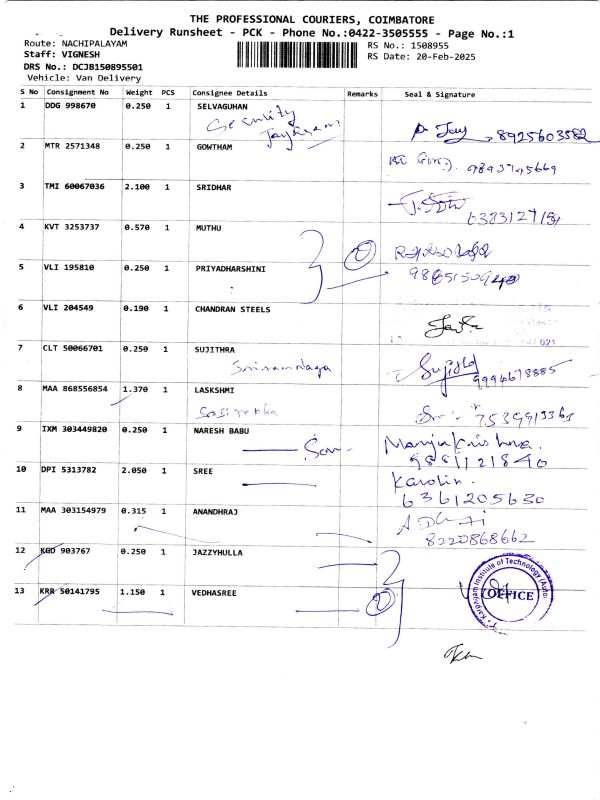 THE PROFESSIONAL COURIERS, COIMBATORE
Delivery Runsheet - PCK - Phone No.:0422-3505555 - Page No.:1
Route: NACHIPALAYAM
Staff: VIGNESH
DRS No.: DCJB150895501
Vehicle: Van Delivery
RS No.: 1508955
RS Date: 20-Feb-2025
S No Consignment No Weight PCS Consignee Details Remarks Seal & Signature
1 DDG 998670 0.250 1 SELVAGUHAN
Security
8925603582
2 MTR 2571348 0.250 1 GOWTHAM
3 TMI 60067036 2.100 1 SRIDHAR
4 KVT 3253737 0.570 1 MUTHU
2
5 VLI 195810 0.250 1 PRIYADHARSHINI
6 VLI 204549 0.190 1 CHANDRAN STEELS
7 CLT 50066701 0.250 1 SUJITHRA
9994678885
8 MAA 868556854 1.370 1 LASKSHMI
9 IXM 303449820 0.250 1 NARESH BABU
Manju Krishna.
9881121840
10 DPI 5313782 2.050 1 SREE
Karolin.
6361205630
11 MAA 303154979 0.315 1 ANANDHRAJ
8220868662
12 KGD 903767 0.250 1 JAZZYHULLA
13 KRR 50141795 1.150 1 VEDHASREE
2
Karpagam Institute of Technology
OFFICE